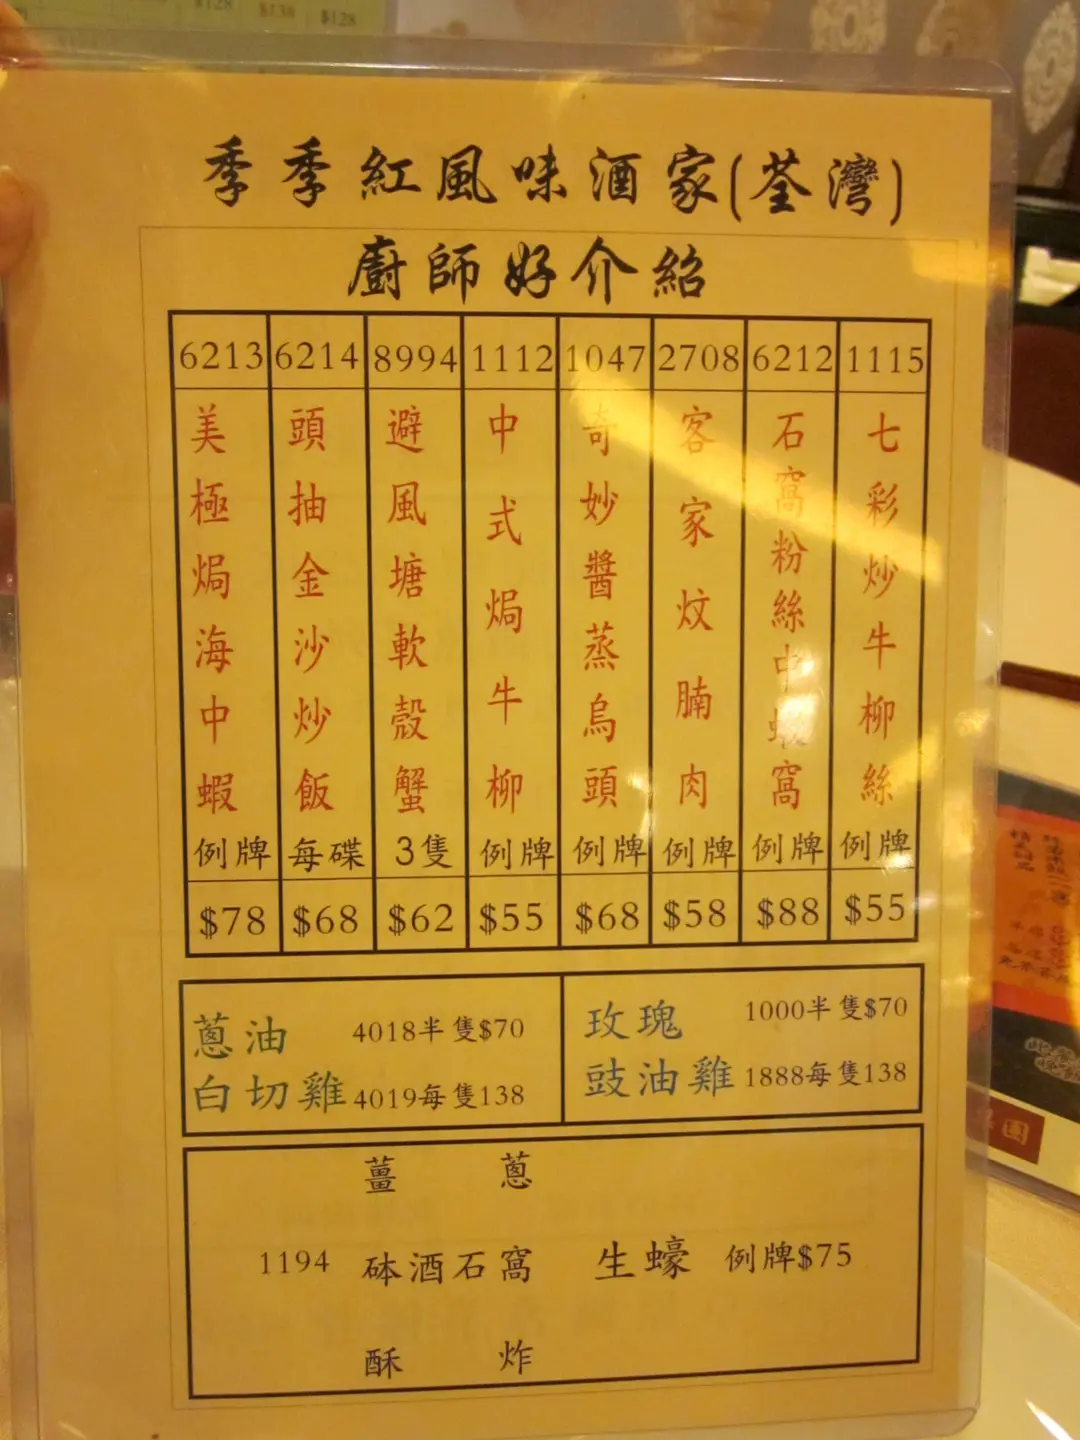 $128 $138 $128
季季紅風味酒家(荃灣)
廚師好介紹
6213 6214 8994 1112 1047 2708 6212 1115
美極焗海中蝦
例牌
$78
頭抽金沙炒飯
每碟
$68
避風塘軟殼蟹
3隻
$62
中式焗牛柳
例牌
$55
奇妙醬蒸烏頭
例牌
$68
客家炆腩肉
例牌
$58
石窩粉絲中蝦窩
例牌
$88
七彩炒牛柳絲
例牌
$55
蔥油 4018半隻$70
白切雞 4019每隻138
玫瑰 1000半隻$70
豉油雞 1888每隻138
薑 蔥
1194 砵酒石窩 生蠔 例牌$75
酥 炸